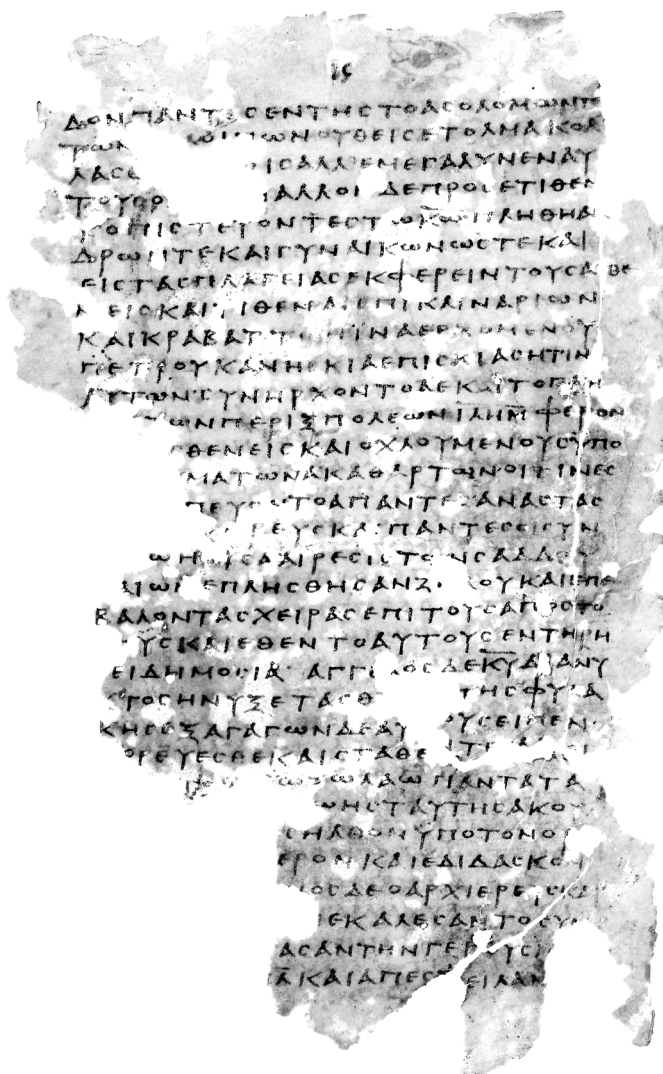 ΙϚ
ΔΟΝΠΑΝΤΕСΕΝΤΗСΤΟΑСΟΛΟΜΩΝΤΟ
ΤΩΝ ΩΝΟΥΘΕΙСΕΤΟΛΜΑΚΟΛ
ΛΑСΘ ΙСΑΛΛΕΜΕΓΑΛΥΝΕΝΑΥ
ΤΟΥСΟ ΑΛΛΟ ΔΕΠΡΟСΕΤΙΘΕΝ
ΤΟΠΙСΤΕΥΟΝΤΕСΤΩΚΩΠΛΗΘΗΑΝ
ΔΡΩΝΤΕΚΑΙΓΥΝΑΙΚΩΝΩСΤΕΚΑΙ
ΕΙСΤΑСΠΛΑΤΕΙΑСΕΚΦΕΡΕΙΝΤΟΥСΑСΘΕ
ΝΕΙСΚΑΙΤΙΘΕΝΑΙΕΠΙΚΛΙΝΑΡΙΩΝ
ΚΑΙΚΡΑΒΑΤΤΩΝΙΝΑΕΡΧΟΜΕΝΟΥ
ΠΕΤΡΟΥΚΑΝΗСΚΙΑΕΠΙСΚΙΑСΗΤΙΝ
ΑΥΤΩΝСΥΝΗΡΧΟΝΤΟΔΕΚΑΙΤΟΠΛΗ
ΤΩΝΠΕΡΙΞΠΟΛΕΩΝΙΛΗΜΦΕΡΟΝ
СΘΕΝΕΙСΚΑΙΟΧΛΟΥΜΕΝΟΥСΥΠΟ
ΜΑΤΩΝΑΚΑΘΑΡΤΩΝΟΙΤΙΝΕС
ΠΕΥΟΝΤΟΑΠΑΝΤΕСΑΝΑСΤΑС
ΡΕΥСΚΑΙΠΑΝΤΕСΟΙСΥΝ
ΩΗΟΥСΑΑΙΡΕСΙСΤΩΝСΑΔΔΟΥ
ΑΙΩΝΕΠΛΗСΘΗСΑΝΖ ΛΟΥΚΑΙΕΠΕ
ΒΑΛΟΝΤΑСΧΕΙΡΑСΕΠΙΤΟΥСΑΠΟСΤΟ
ΥСΚΑΙΕΘΕΝΤΟΑΥΤΟΥСΕΝΤΗΡΗ
ΕΙΔΗΜΟСΙΑ ΑΓΓΕΛΟСΔΕΚΥΔΙΑΝΥ
ΚΤΟСΗΝΥΞΕΤΑСΘ ΤΗСΦΥΛΑ
ΚΗСΕΞΑΓΑΓΩΝΔΕΑΥΤΟΥСΕΙΠΕΝ
ΟΡΕΥΕСΘΕΚΑΙСΤΑΘΕ
ΤΩΛΑΩΠΑΝΤΑΤΑ
ΩΗСΤΑΥΤΗСΑΚΟΥ
СΗΛΘΟΝΥΠΟΤΟΝΟ
ΕΡΟΝΚΑΙΕΔΙΔΑСΚΟΝ
ΝΟСΔΕΟΑΡΧΙΕΡΕΥСΚΑΙ
ΙΕΚΑΛΕСΑΝΤΟСΥΝ
ΑСΑΝΤΗΝΓΕΡΟΥСΙ
ΙΗΛΚΑΙΑΠΕСΤΕΙΛΑΝ